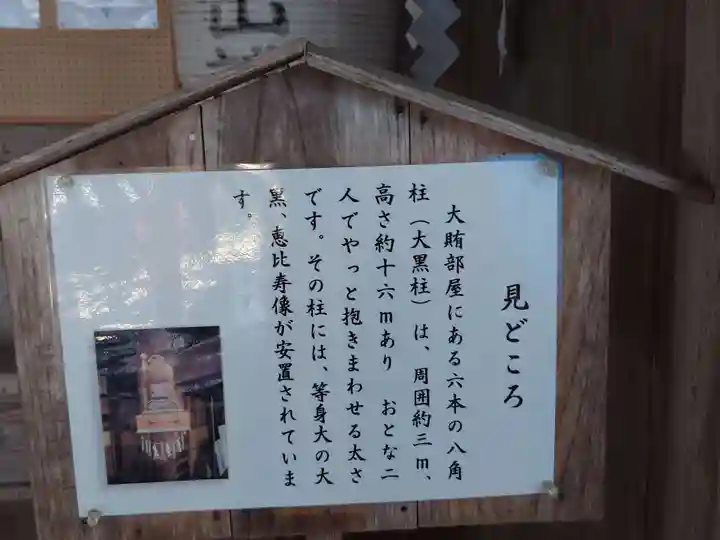 見どころ
大賄部屋にある六本の八角
柱（大黒柱）は、周囲約三m、
高さ約十六mあり　おとな二
人でやっと抱きまわせる太さ
です。その柱には、等身大の大
黒、恵比寿像が安置されていま
す。